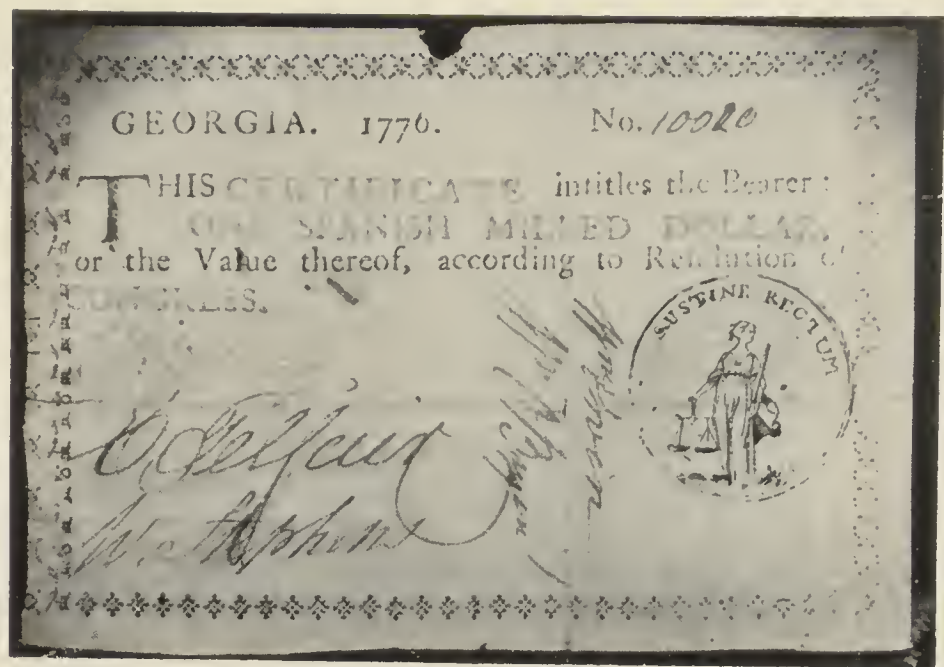 GEORGIA. 1776. No. 10020
THIS CERTIFICATE intitles the Bearer
ONE SPANISH MILLED DOLLAR,
or the Value thereof, according to Resolution of
CONGRESS.
SUSTINE RECTUM
E. Telfair
Wm. Stephens